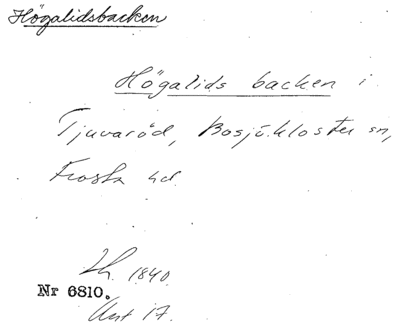 Högalidsbacken
Högalids backen i
Tjuvaröd, Bosjökloster sn,
Frosta hd.
Lh. 1840.
Nr 6810.
Ant 17.